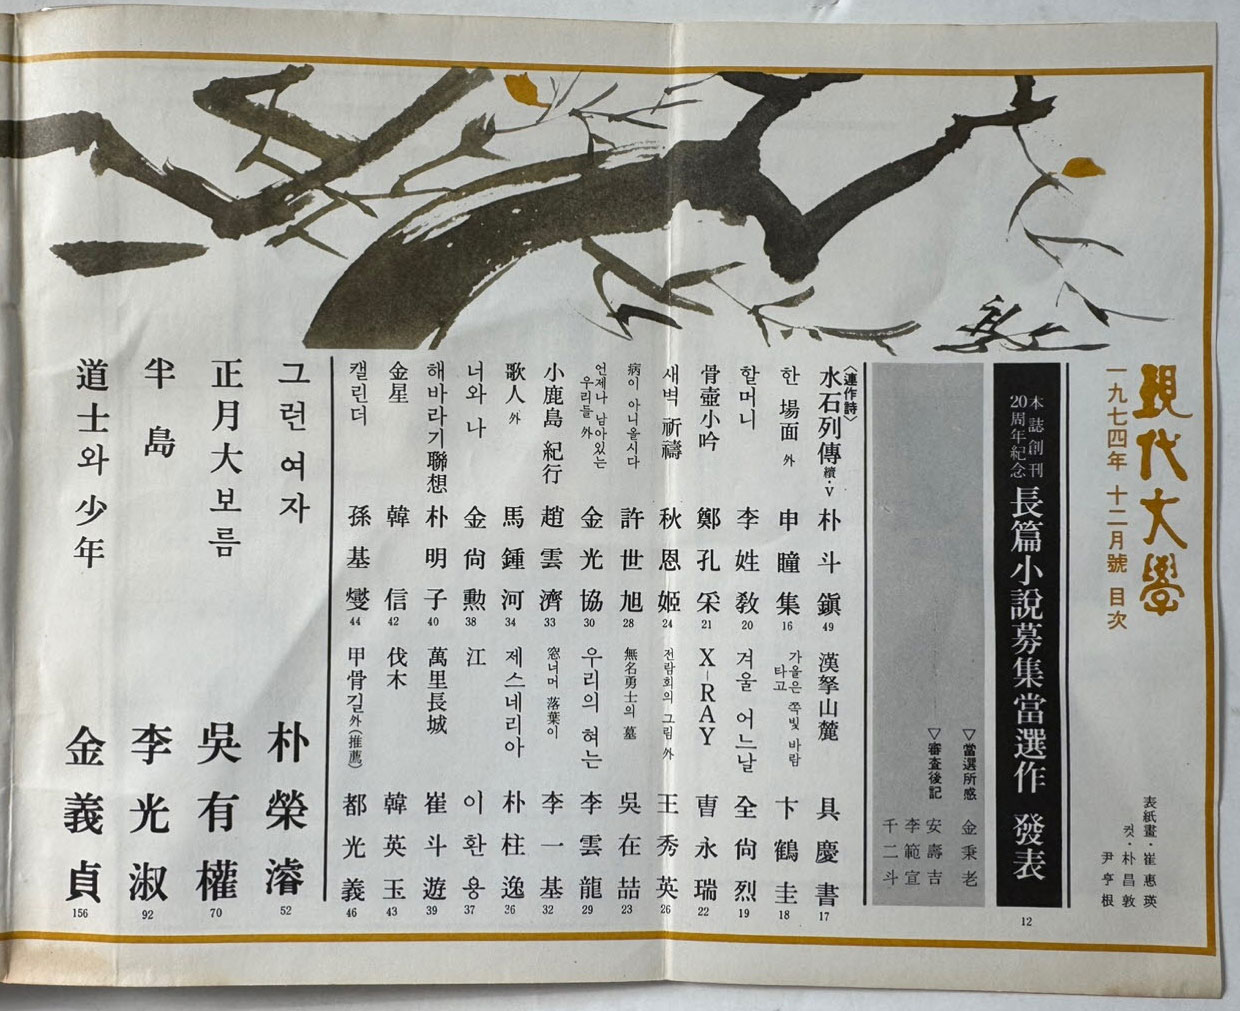 現代文學
一九七四年 十二月號 目次
表紙畫·崔惠瑛
컷·朴昌敦
尹亨根
本誌創刊
20周年紀念
長篇小說募集當選作 發表
12
▽當選所感 金秉老
▽審査後記 安壽吉
李範宣
千二斗
〈連作詩〉
水石列傳 續·V 朴斗鎭 49
漢拏山麓 具慶書 17
한 場面 外 申瞳集 16
가을은 쪽빛 바람
타고 卞鶴圭 18
할머니 李姓敎 20
겨울 어느날 全尙烈 19
骨壺小吟 鄭孔采 21
X-RAY 曺永瑞 22
새벽 祈禱 秋恩姬 24
전람회의 그림 外 王秀英 26
病이 아니올시다 許世旭 28
無名勇士의 墓 吳在喆 23
언제나 남아있는
우리들 外 金光協 30
우리의 혀는 李雲龍 29
小鹿島 紀行 趙雲濟 33
窓너머 落葉이 李一基 32
歌人 外 馬鍾河 34
제스네리아 朴柱逸 36
너와 나 金尙勳 38
江 이환용 37
해바라기聯想 朴明子 40
萬里長城 崔斗遊 39
金星 韓信 42
伐木 韓英玉 43
캘린더 孫基燮 44
甲骨길 外(推薦) 都光義 46
그런 여자 朴榮濬 52
正月大보름 吳有權 70
半島 李光淑 92
道士와 少年 金義貞 156